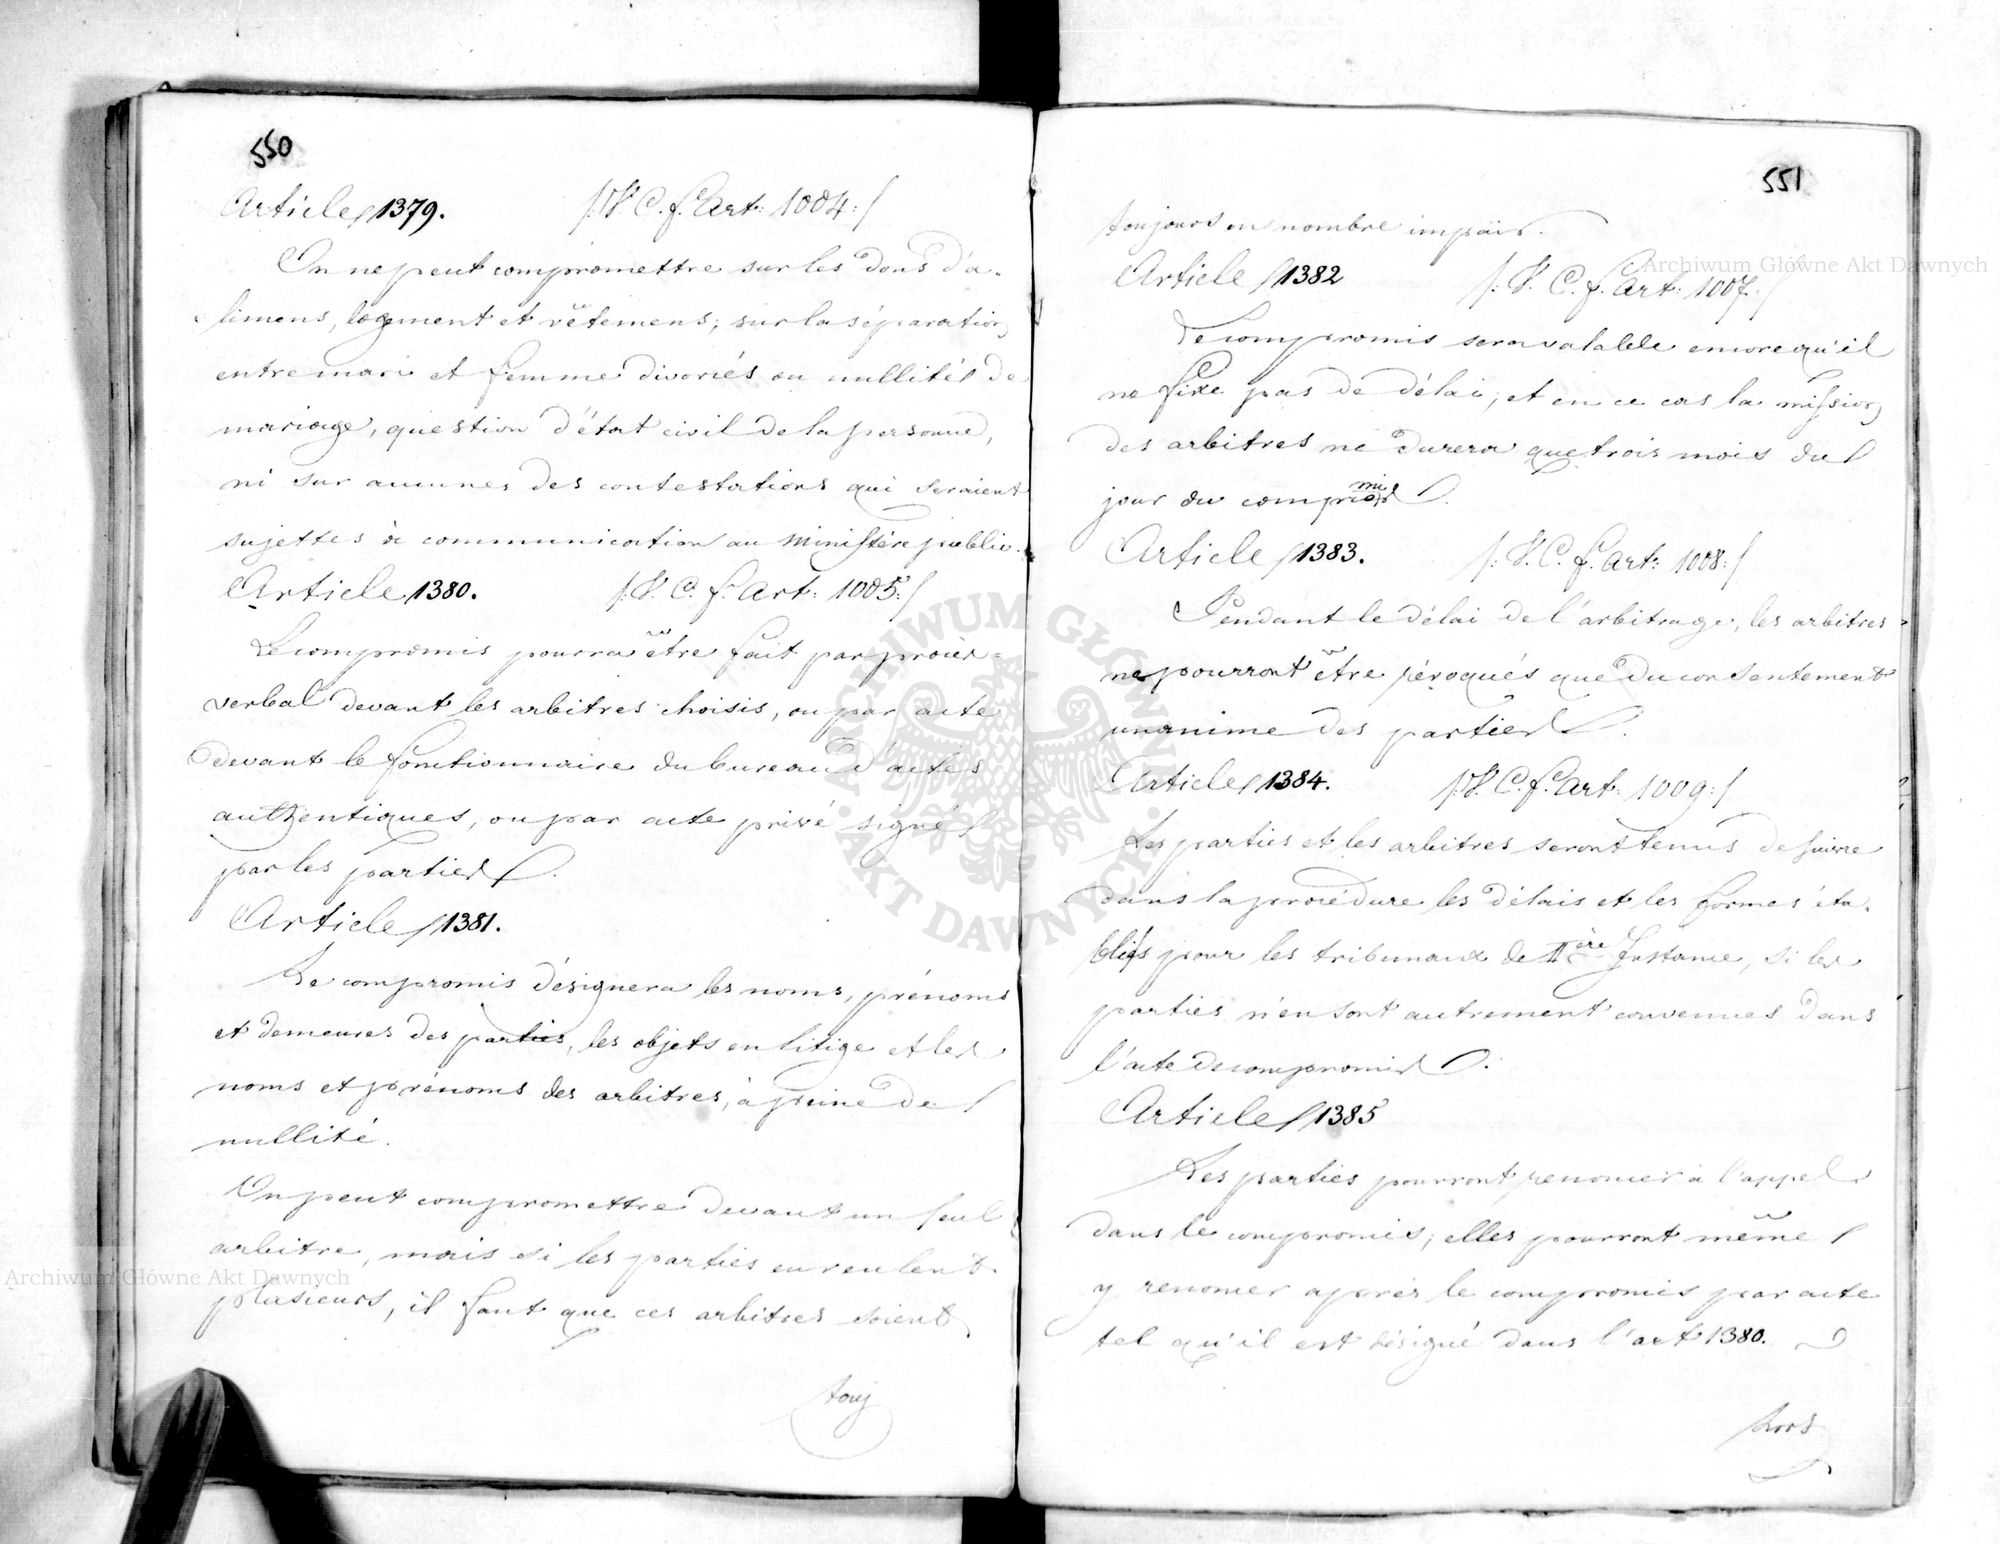 550
Article 1379. /: V. C. f. Art: 1004:/
On ne peut compromettre sur les dons d'a-
limens, logement et vêtemens; sur la séparation
entre mari et femme divorcés ou nullités de
mariage, question d'état civil de la personne,
ni sur aucunes des contestations qui seraient
sujettes à communication au ministère public.
Article 1380. /: V. C. f. Art: 1005:/
Le compromis pourra être fait par procès-
verbal devant les arbitres choisis, ou par acte
devant le fonctionnaire du bureau d'actes
authentiques, ou par acte privé signé
par les parties.
Article 1381.
Le compromis désignera les noms, prénoms
et demeures des parties, les objets en litige et les
noms et prénoms des arbitres, à peine de
nullité.
On peut compromettre devant un seul
arbitre, mais si les parties en veulent
plusieurs, il faut que ces arbitres soient
touj
551
toujours en nombre impair.
Article 1382 /: V. C. f. Art: 1007:/
Le compromis sera valable encore qu'il
ne fixe pas de délai; et en ce cas la mission
des arbitres ne durera que trois mois du
jour du compromis.
Article 1383. /: V. C. f. Art: 1008:/
Pendant le délai de l'arbitrage, les arbitres
ne pourront être révoqués que du consentement
unanime des parties.
Article 1384. /: V. C. f. Art: 1009:/
Les parties et les arbitres seront tenus de suivre
dans la procédure les délais et les formes éta-
bliés pour les tribunaux de Ière Instance, si les
parties n'en sont autrement convenues dans
l'acte de compromis.
Article 1385
Les parties pourront renoncer à l'appel
dans le compromis; elles pourront même
y renoncer après le compromis par acte
tel qu'il est désigné dans l'art 1380.
hors
Archiwum Główne Akt Dawnych
Archiwum Główne Akt Dawnych
ARCHIWUM GŁÓWNE · AKT DAWNYCH ·